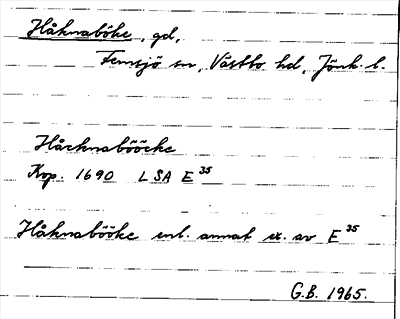 Håknaböke, gd,
Femsjö sn, Västbo hd, Jönk. l.
Håcknabööcke
Kop. 1690 LSA E 35
Håknabööke enl. annat ex. av E 35
G.B. 1965.